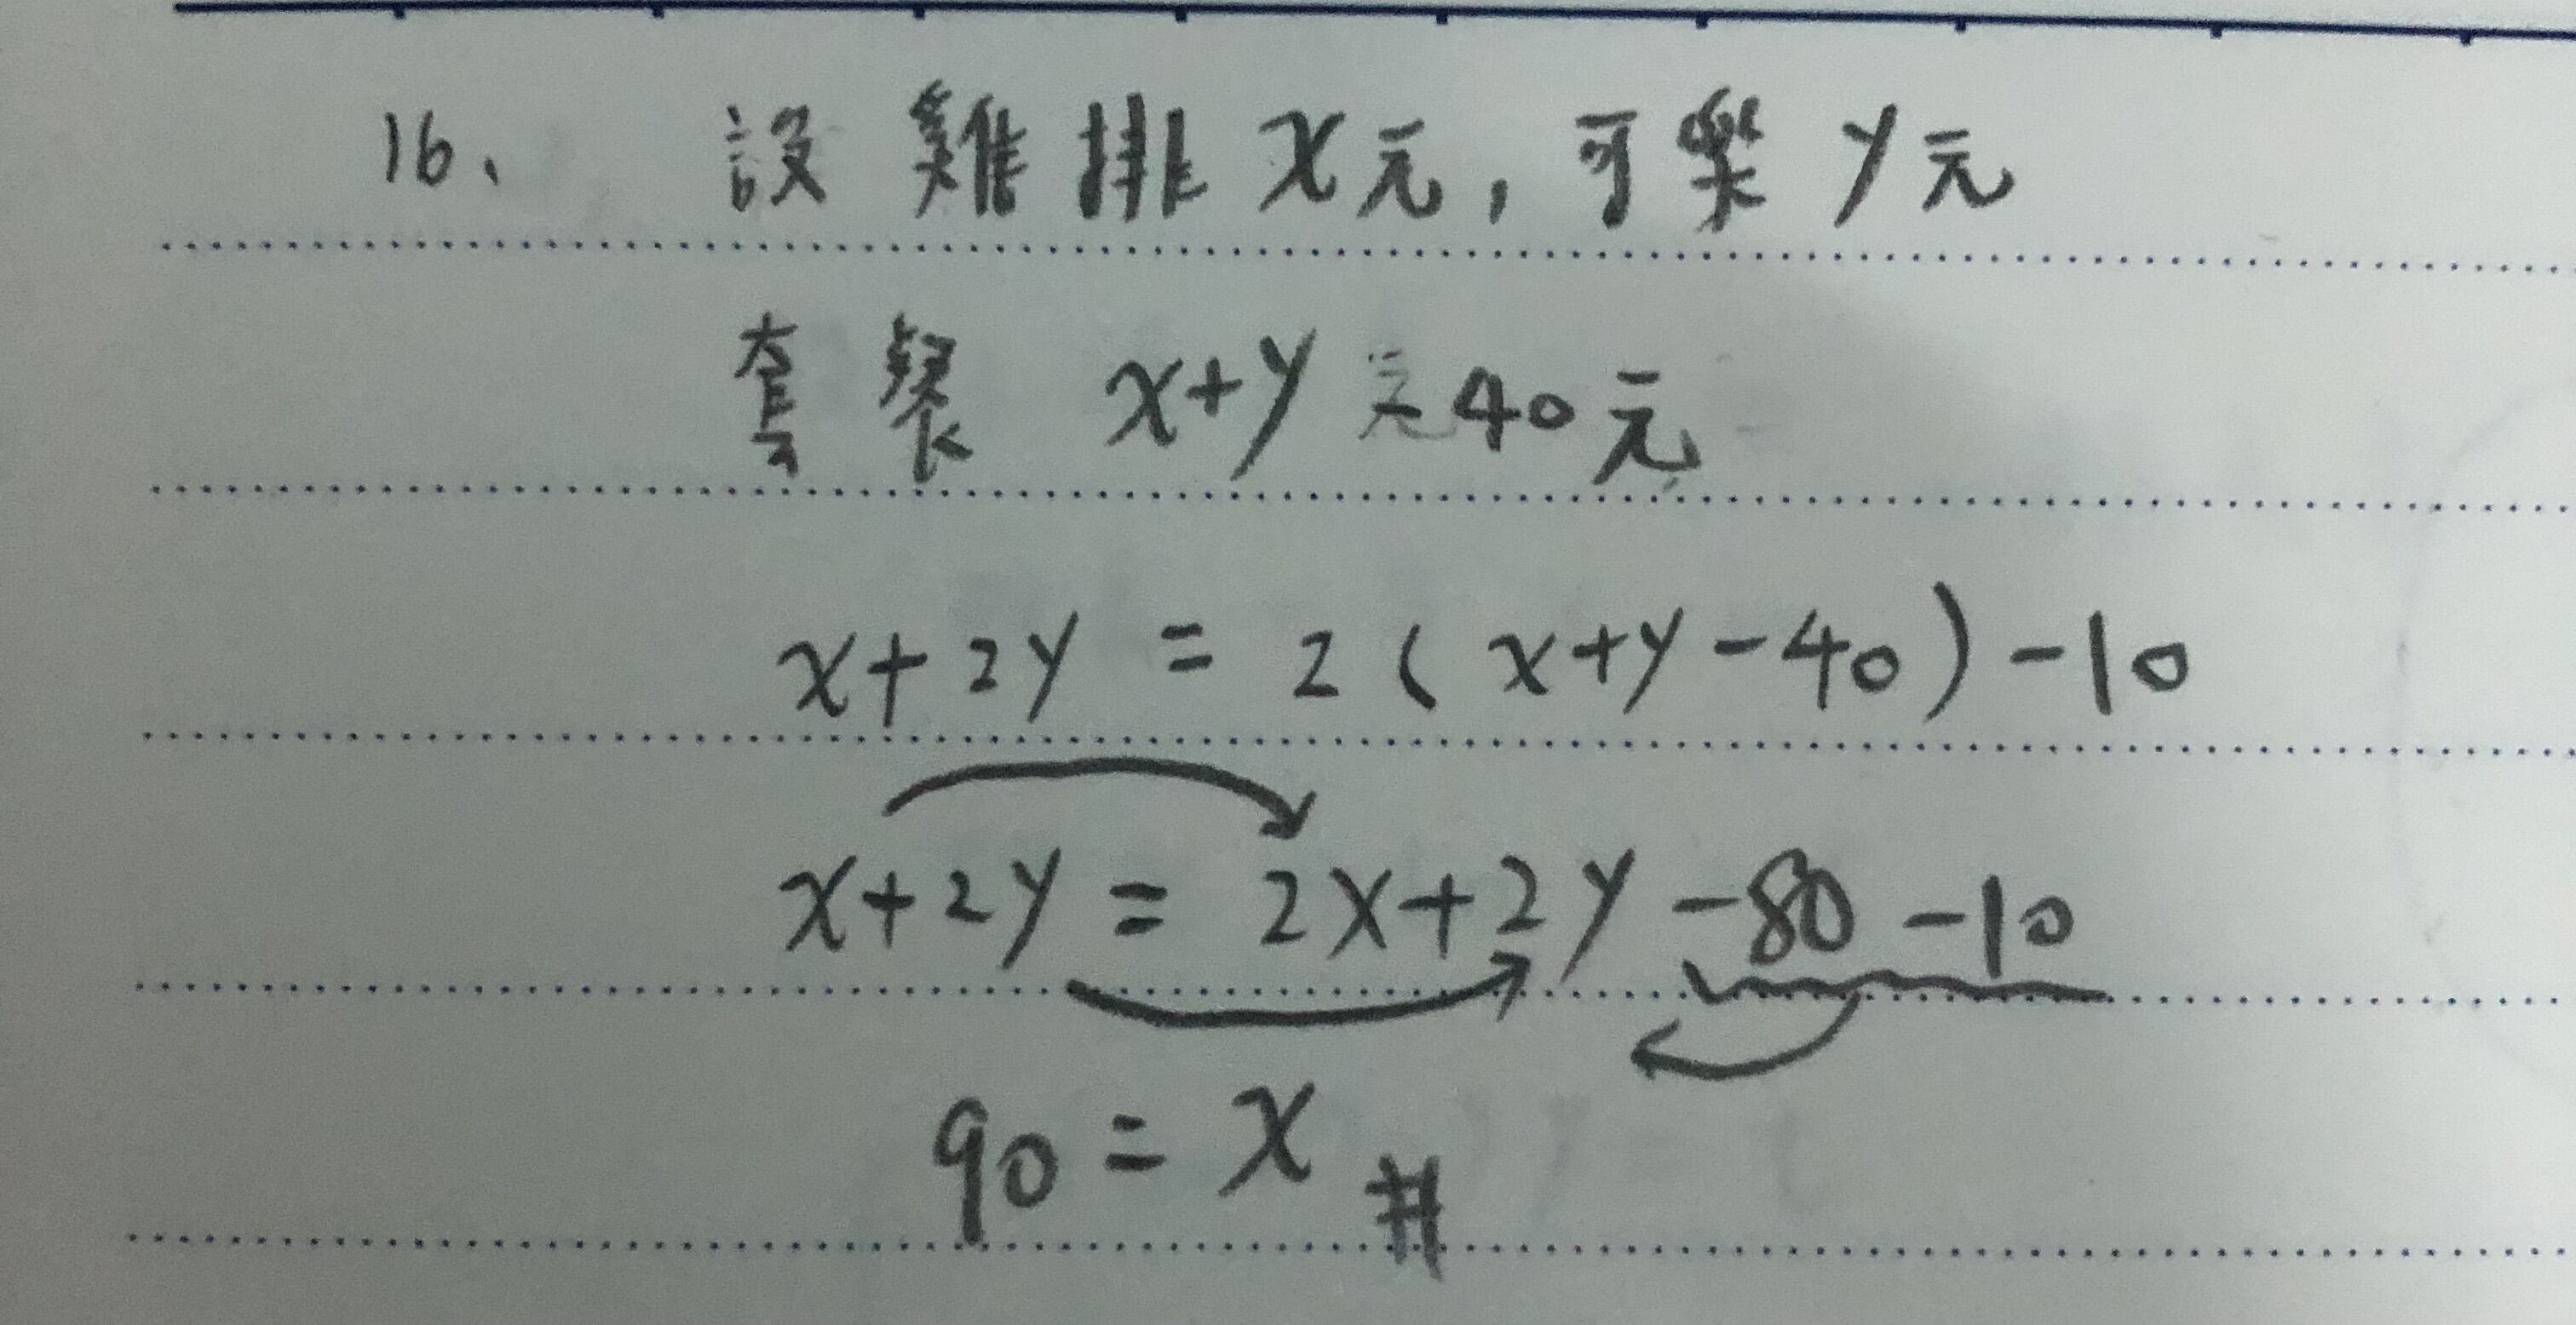 16、 設 雞 排 x元, 可樂 y元
套餐 x+y-40元
x+2y = 2(x+y-40)-10
x+2y = 2x+2y-80-10
90 = x #